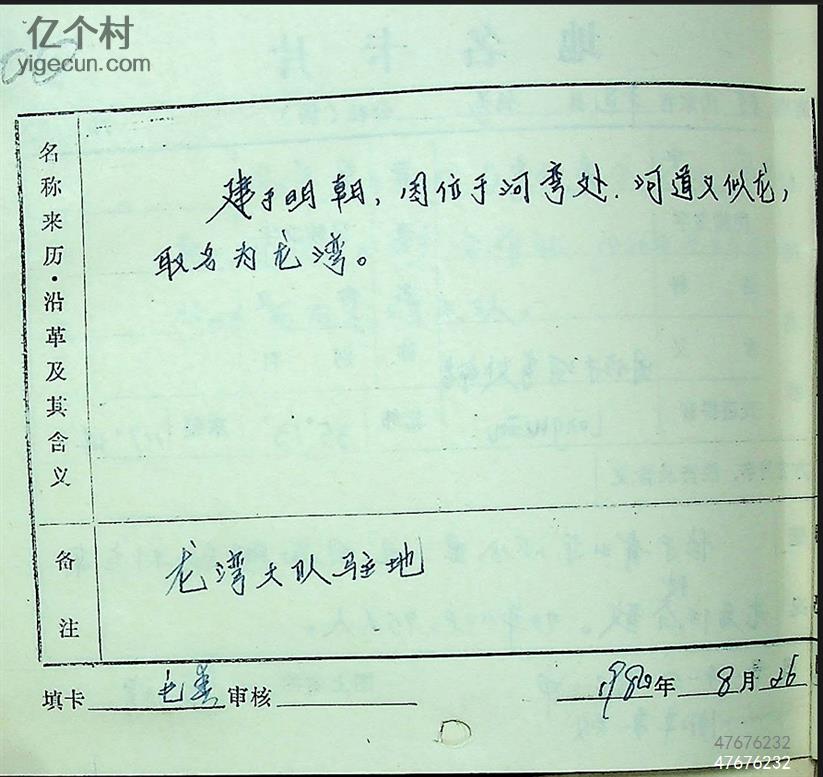 亿个村
yigecun.com
名称来历·沿革及其含义
建于明朝，因位于河弯处.河道又似龙，
取名为龙湾。
备注
龙湾大队驻地
填卡 审核
1980年 8月26
47676232
47676232